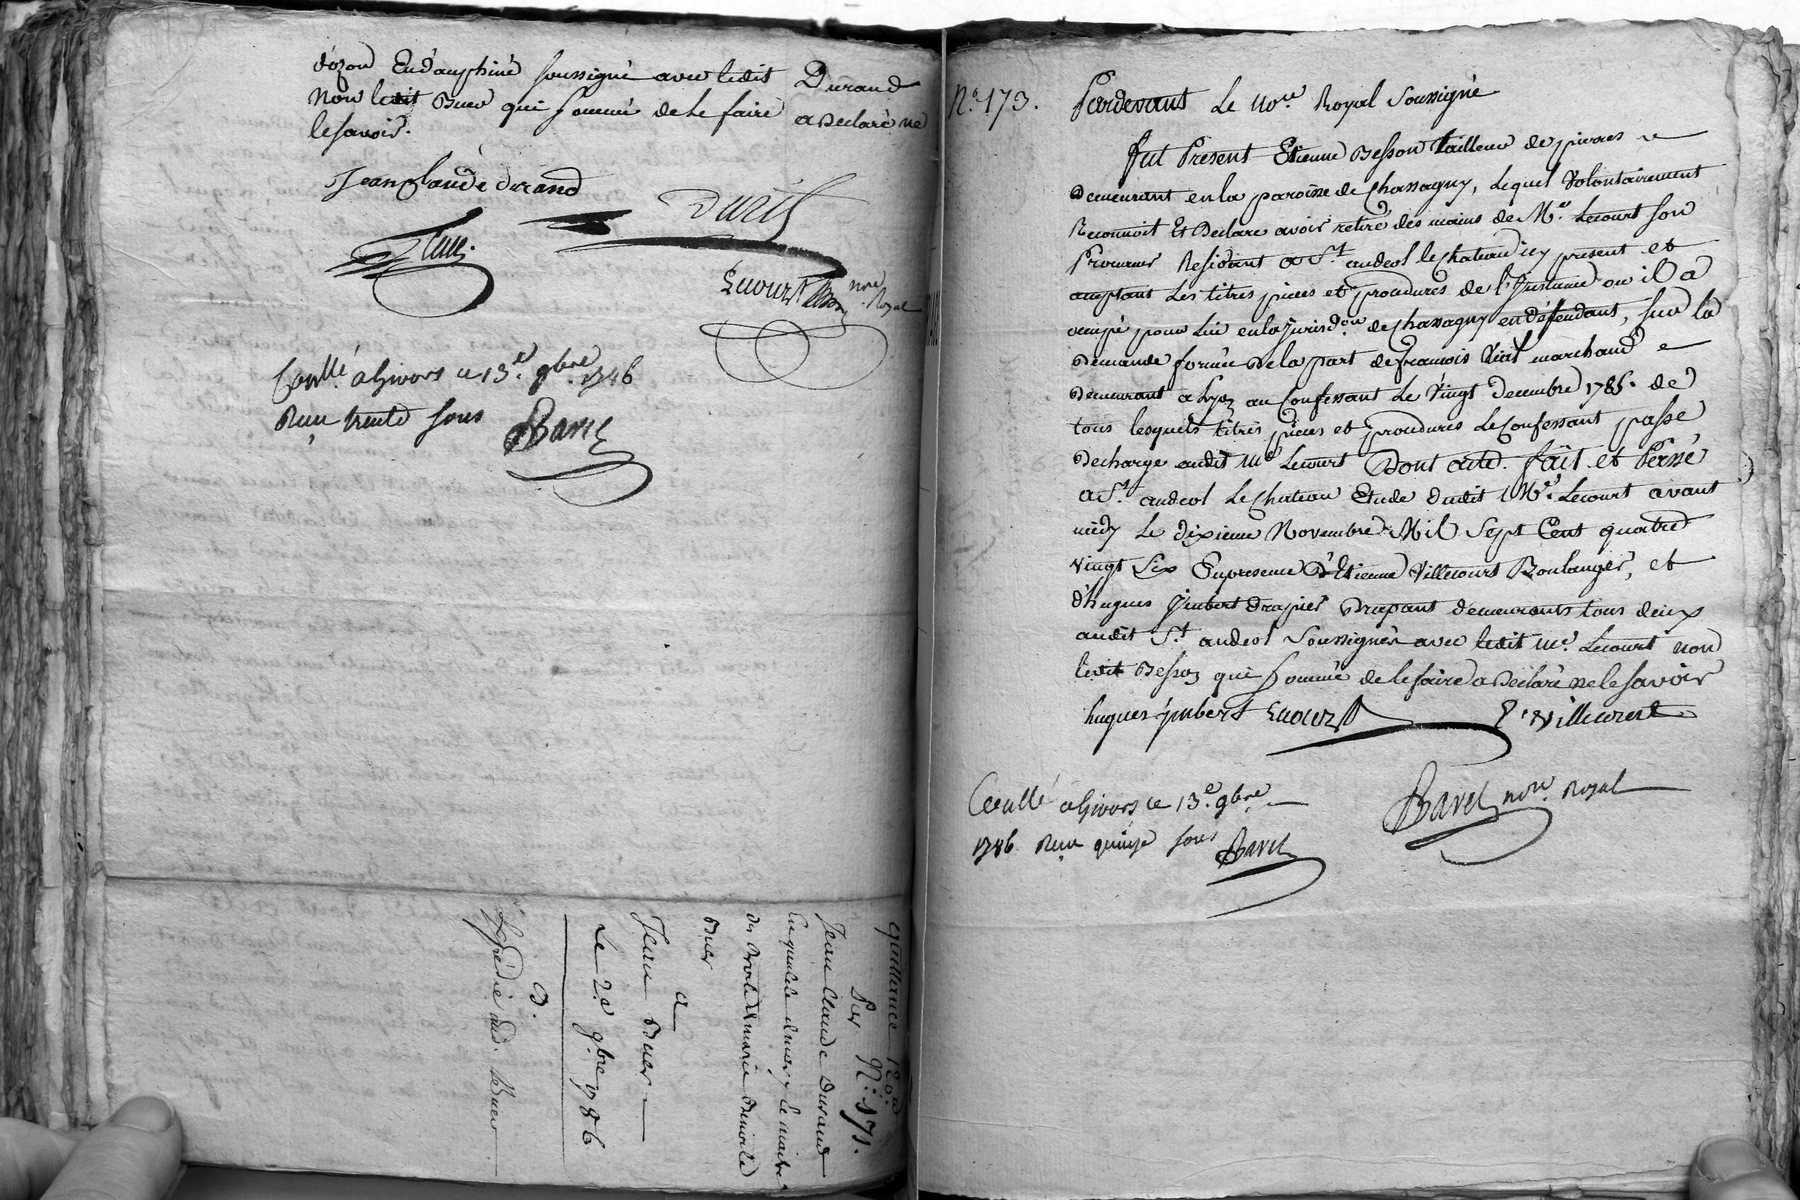 d'ozon En dauphiné soussigné avec ledit Durand
Non ledit Buer qui sommé de le faire a declaré ne
le savoir.
Jean Claude durand
Lecourt nore Royal
Conllé a Givors ce 13.e 9bre 1786
Reçu trente sous
Bavet
quittance 120ll
Par N.o 171.
Jean Claude Durand
En qualité de mary & maitre
des Droits de marie Benoite
Buer
a
Jean Buer
Le 2.e 9bre 1786
Expédié aud. Buer
N.o 173. Pardevant Le Nore Royal Soussigné
fut Present Etienne Besson tailleur de pierres
Demeurant en la paroisse de Chassagny, Lequel Volontairement
Reconnoit Et Declare avoir retiré des mains de M.e Lecourt son
Procureur Residant a S.t andeol le chateau icy present et
acceptant Les titres pieces et procedures de l'Instance ou il a
occupé pour Lui en la jurisd.on de Chassagny en défendant, sur la
Demande formée De la part de francois Vial marchand
Demeurant a Lyon au Confessant Le Vingt Decembre 1785. de
tous lesquels titres pieces et procedures Le Confessant passe
Decharge audit M.e Lecourt Dont acte. fait et Passé
a S.t andeol Le Chateau Etude dudit M.e Lecourt avant
midy Le dixieme Novembre Mil Sept Cent quatre
vingt Six En presence d'Etienne Villecourt Boulanger, et
d'hugues jmbert drapier Drapant demeurants tous deux
audit S.t andeol Soussignés avec ledit M.e Lecourt non
ledit Besson qui sommé de le faire a Declaré ne le savoir
hugues jmbert Lecourt E. Villecourt
Bavet nore. Royal
Conllé a Givors ce 13.e 9bre
1786 Reçu quinze sous Bavet